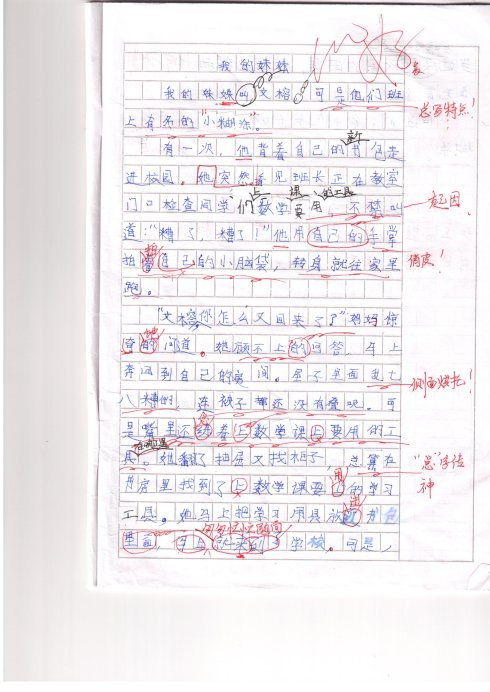 我的妹妹
我的妹妹叫文榕，可是他们班 总写特点！
上有名的“小糊涂”。
新
有一次，他背着自己的书包走
进校园。她突然看见班长正在教室
上课 的工具
门口检查同学们数学要用，不禁叫 起因
道：“糟了，糟了！”他用自己的手掌
拍自己的小脑袋，转身就往家里 俏皮！
跑。
“文榕你怎么又回来了？”妈妈惊
奇的问道。她顾不上的回答，马上
奔回到自己的房间。屋子里面乱七 侧面烘托！
八糟的，连被子都还没有叠呢。可
是嘴里还念着上数学课上要用的工
具。她翻了抽屉又找柜子，总算在 “总”字传
书房里找到了上数学课要用的学习 神
工具。她马上把学习用具放到书包
里面，马上就来到学校。可是，